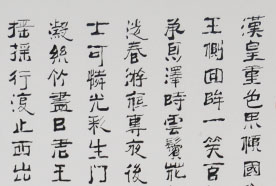 漢皇重色思傾國
王側回眸一笑百
承恩澤時雲鬢花
從春游夜專夜後
士可憐光彩生門
凝絲竹盡日君王
搖搖行復止西出